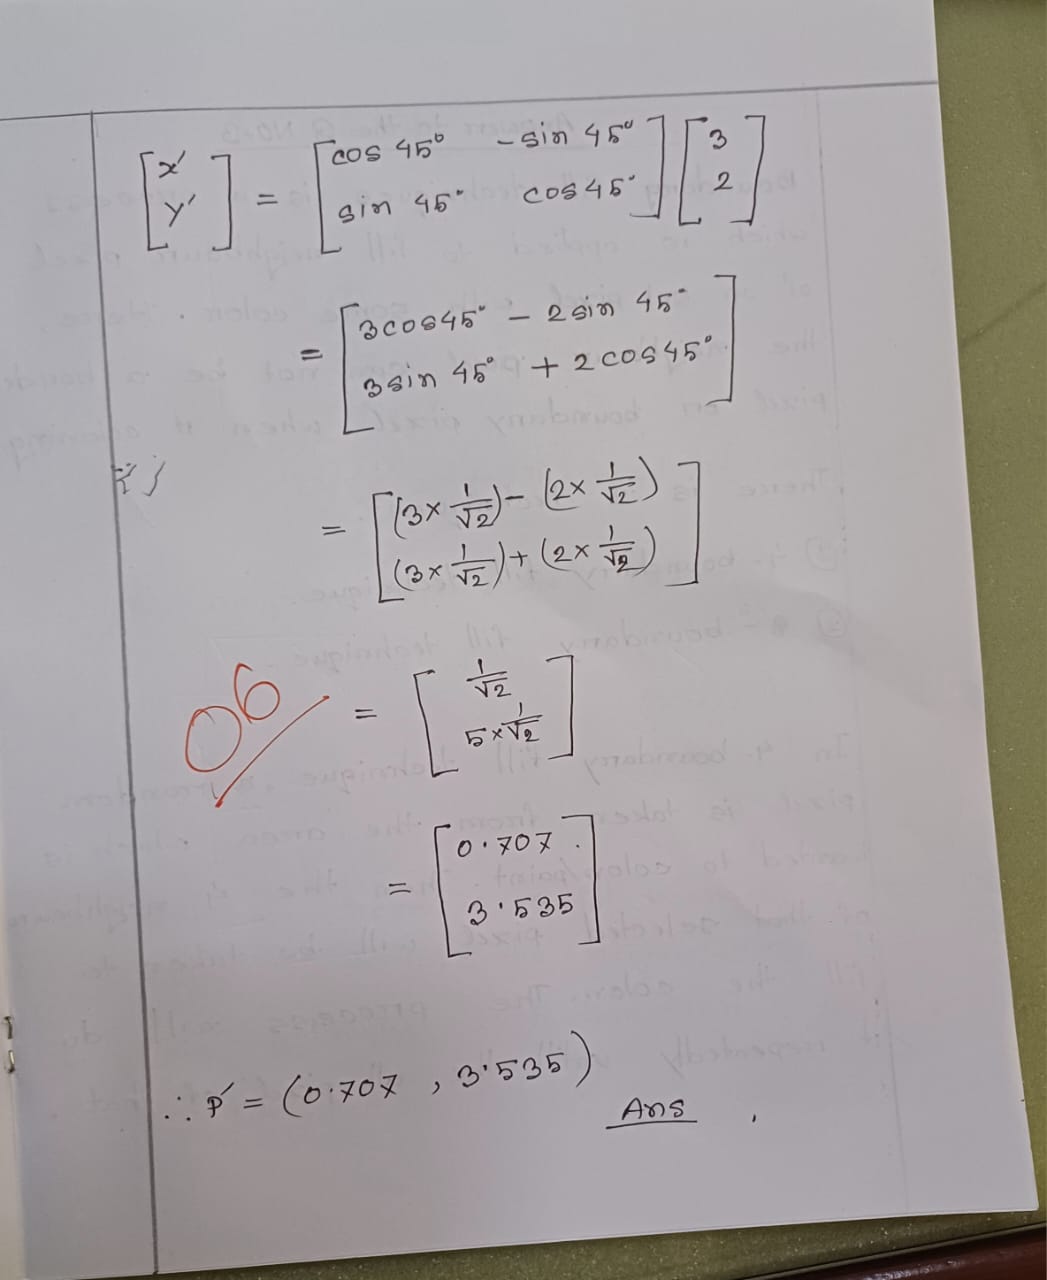 [x' y'] = [cos 45° -sin 45° sin 45° cos 45°] [3 2]
= [3cos45° - 2sin 45° 3sin 45° + 2cos45°]
= [(3× 1/√2) - (2× 1/√2) (3× 1/√2) + (2× 1/√2)]
06
= [1/√2 5×1/√2]
= [0.707 3.535]
∴ P' = (0.707, 3.535)
Ans.